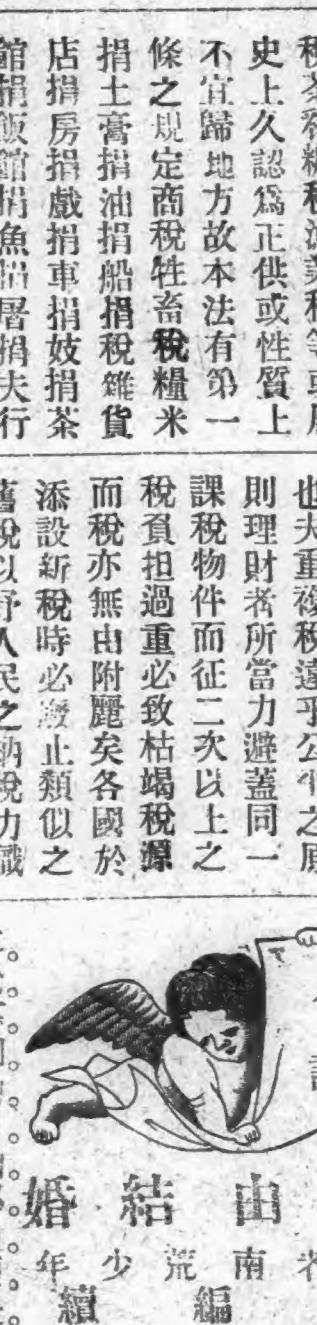 史上久認爲正供或性質上
不宜歸地方故本法有第一
條之規定商稅牲畜稅糧米
捐土膏捐油捐船捐稅雜貨
店捐房捐戲捐車捐妓捐茶
館捐飯館捐魚捐屠捐夫行
也夫重複稅遠乎公平之原
則理財者所當力避蓋同一
課稅物件而征二次以上之
稅負担過重必致枯竭稅源
而稅亦無由附麗矣各國於
添設新稅時必廢止類似之
舊稅以舒人民之納稅力
由結婚
南荒少年
編續